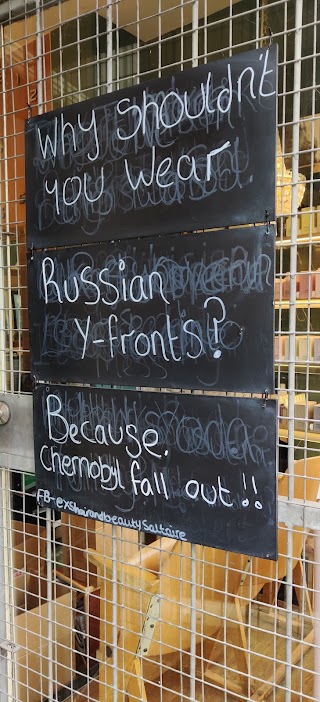 Why Shouldn't
you wear
Russian
Y-fronts?
Because.
Chernobyl fall out!!
FB-exShairandbeautySaltaire